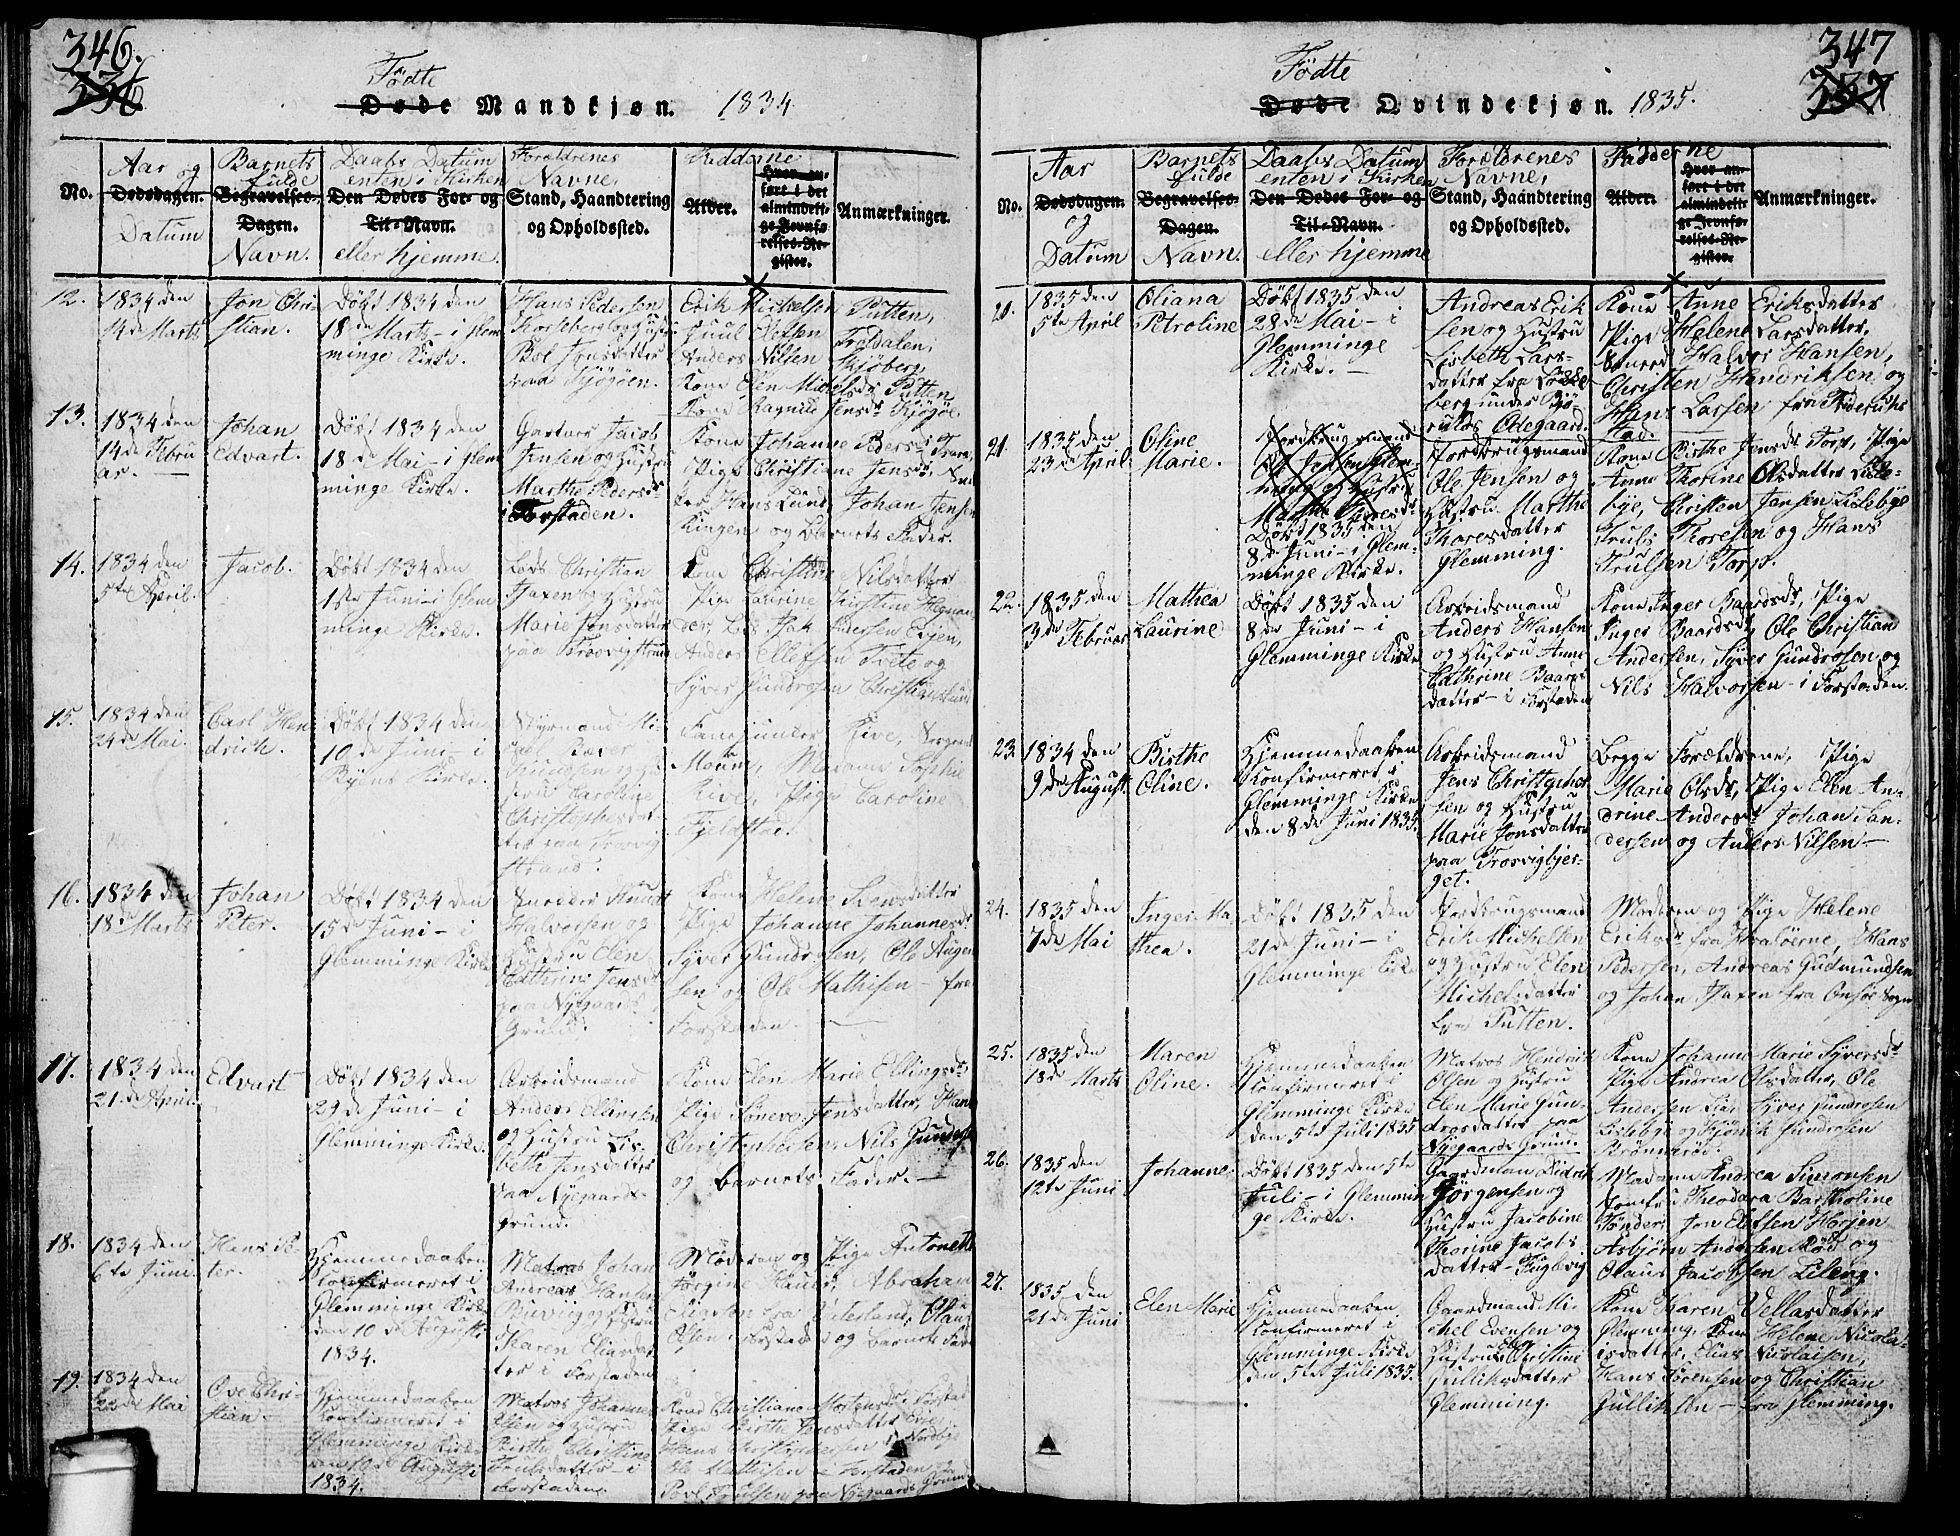 346.
336
Födte
Døde Mandkjøn. 1834
No.
Aar og
Dødsdagen.
Datum
Barnets
fulde
Begravelses-
Dagen.
Navn.
Daabs Datum
enten i Kirken
Den Dødes For- og
Til-Navn.
eller hjemme.
Forældrenes
Navne,
Stand, Haandtering
og Opholdssted.
Fadderne
Alder.
Hvor an-
ført i det
almindeli-
ge Jevnfø-
relses-Re-
gister.
Anmærkninger.
12.
1834 den
14de Marts
Jon Chri-
stian.
Döbt 1834 den
18de Marts - i Glem
minge Kirke.
Hans Pedersen
Bol Jonsdatter
paa Kjøgøen.
Erik Mickelsen Putten,
Juul Elefsen
Anders Nilsen Kjöberg,
Kone Elen Michelsds Putten
Kone Ragnild Jensdr Kjögöe
13.
1834 den
14de Febru
ar.
Johan
Edvart.
Döbt 1834 den
18de Mai - i Glem
minge Kirke.
Gartner Jacob
Jensen og Hustru
Marthe Pedersdr
i Forstaden.
Kone Johanne Peders-
Pige Christiane Jensdr,
Hans Lund, Johan Jensen
Kingen og Barnets Fader.
14.
1834 den
5te April.
Jacob.
Döbt 1834 den
1ste Juni - i Glem
minge Kirke.
Lods Christian
Marie Jonsdatter
paa Trosvigstrand
Kone Christine Nilsdatter
Pige Laurine Kirstine
Anders Ellefsen Tvete og
Syver Gundrosen Christianslund
15.
1834 den
24de Mai.
Carl Hen
drich.
Döbt 1834 den
10de Juni - i
Byens Kirke.
Styrmand Mi-
Knudsen og Hu
stru Caroline
Christophersdat-
ter paa Trosvig
Strand.
Rive, Madame Sophie
Rive, Pige Caroline
Fjeldstad.
16.
1834 den
18de Marts
Johan
Peter.
Döbt 1834 den
15de Juni - i
Glemminge Kirke
Snedker Knudt
Halvorsen og
Hustru Elen
Cathrine Jensdr
paa Nyegaards
Grund.
Kone Helene Svensdatter
Pige Johanne Johannesdr
Syver Gundrosen, Ole Haagen
sen og Ole Mathisen - fra
Forstaden.
17.
1834 den
21de April.
Edvart
Döbt 1834 den
29de Juni - i
Glemminge Kirke.
Arbeidsmand
Anders Ellingsen
og Hustru Lis-
beth Jensdatter
paa Nyegaards-
grund.
Kone Elen Marie Ellingsdr.
Pige Söneve Jonsdatter, Hans
Christophersen, Nils Gunders
og barnets Fader. -
18.
1834 den
6te Juni
Hans Pe-
ter.
Hjemmedaaben
konfirmeret i
Glemminge Kirke
den 10de August
1834.
Matros Johan
Andreas Hansen
og Hustru
Karen Eliasdat
ter i Forstaden
Moderen og Pige Antonette
Jörgine Hansdr, Abraham
Eliasen fra Vesterland, Olaus
Olsen i Forstaden og barnets Fader
19.
1834 den
22de Mai
Ove Chri-
stian.
Hjemmedaaben
konfirmeret i
Glemminge Kirke
den 10de August
1834.
Matros Johannes
Olsen og Hustru
Birthe Christine
Trulsdatter - i
Forstaden.
Kone Christiane Mortensdr. Forstad
Pige Birthe Jensdatter Evje,
Hans Christophersen i Nordbye
Ole Mathisen i Forstaden og
Povl Trulsen paa Nyegaards Grund
347
337
Födte
Døde Qvindekjøn. 1835.
No.
Aar
Dødsdagen.
og
Datum
Barnets
fulde
Begravelses-
Dagen.
Navn.
Daabs Datum
enten i Kirken
Den Dødes For- og
Til-Navn.
eller hjemme
Forældrenes
Navne,
Stand, Haandtering
og Opholdssted.
Fadderne
Alder.
Hvor an-
ført i det
almindeli-
ge Jevnfø-
relses-Re-
gister.
Anmærkninger.
20.
1835 den
5te April
Oliana
Petroline
Döbt 1835 den
28de Mai - i
Glemminge
Kirke. -
Andreas Erik
sen og Hustru
Lisbeth Lars-
datter fra Lökke
berg under Bjö
rulos Ödegaard.
Kone Anne Eriksdatter
Pige Helene Larsdatter,
Smeed Halvor Hansen,
Christen Hendriksen og
Hans Larsen fra Friderichs
stad.
21.
1835 den
23de April.
Oline
Marie.
Jordbrugsmand
Ole Jensen Glem-
ming og Hustru
Marthe Thoresdr
Döbt 1835 den
8de Juni - i Glem-
minge Kirke.
Jordbrugsmand
Ole Jensen og
Hustru Marthe
Thoresdatter
Glemming.
Kone Birthe Jensdr Torp, Pige
Anne Thorine Olsdatter Lisle-
bye, Christen Jensen Lislebye
Truls Thoresen og Hans
Trulsen Torp.
22.
1835 den
3de Februar
Mathea
Laurine
Döbt 1835 den
8de Juni - i
Glemminge Kirke
Arbeidsmand
Anders Hansen
og Hustru Anne
Cathrine Baards
datter - i Forstaden
Kone Inger Baardsdr, Pige
Inger Baardsdr, Ole Christian
Andersen, Syver Gundrosen og
Nils Halvorsen - i Forstaden.
23.
1834 den
9de August.
Birthe
Oline.
Hjemmedaaben
konfirmeret i
Glemminge Kirke
den 8de Juni 1835.
Arbeidsmand
Jens Christopher
sen og Hustru
Marie Jonsdatter
paa Trosvigbjer-
get.
Begge Forældrene, Pige
Marie Olsdr, Pige Elen An-
drine Andersdr. Johan An-
dersen og Anders Nilsen -
24.
1835 den
7de Mai
Inger Ma
thea.
Döbt 1835 den
21de Juni - i
Glemminge Kirke
Jordbrugsmand
Erik Michelsen
og Hustru Elen
Michelsdatter
Putten.
Moderen og Pige Helene
Eriksdr fra Hvalöerne, Hans
Pedersen, Andreas Gudmundsen
og Johan Isaxen fra Onsöe Sogn
25.
1835 den
18de Marts
Maren
Oline.
Hjemmedaaben
konfirmeret i
Glemminge Kirke
den 5te Juli 1835
Matros Hendrik
Olsen og Hustru
Elen Marie Gun-
drosdatter paa
Nyegaards Grund
Kone Johanne Marie Syversdr
Pige Andrea Olsdatter, Ole
Andersen Lie, Syver Gundrosen
Lislebye og Gundrosen
Brönneröd.
26.
1835 den
12te Juni
Johanne.
Döbt 1835 den 5te
Juli - i Glemmin
ge Kirke.
Gaardman Didrik
Jörgensen og
Hustru Jacobine
Thorine Jacobs
datter - Trosvig
Madame Andrea Simonsen
Jomfru Theodora Bartholine
Tönder, Jon Elefsen Horjen
Asbjörn Andersen Röd og
Olaus Jacobsen Lileng.
27.
1835 den
21de Juni
Elen Marie
Hjemmedaaben
konfirmeret i
Glemminge Kirke
den 5te Juli 1835.
Gaardmand Mi-
chel Evensen og
Hustru Elen Christine
Gulliksdatter
Glemming.
Kone Karen Vellasdatter
Glemming, Kone Helene Nicola-
isdatter, Elias Nicolaisen,
Hans Sörensen og Christian
Gulliksen - fra Glemming.